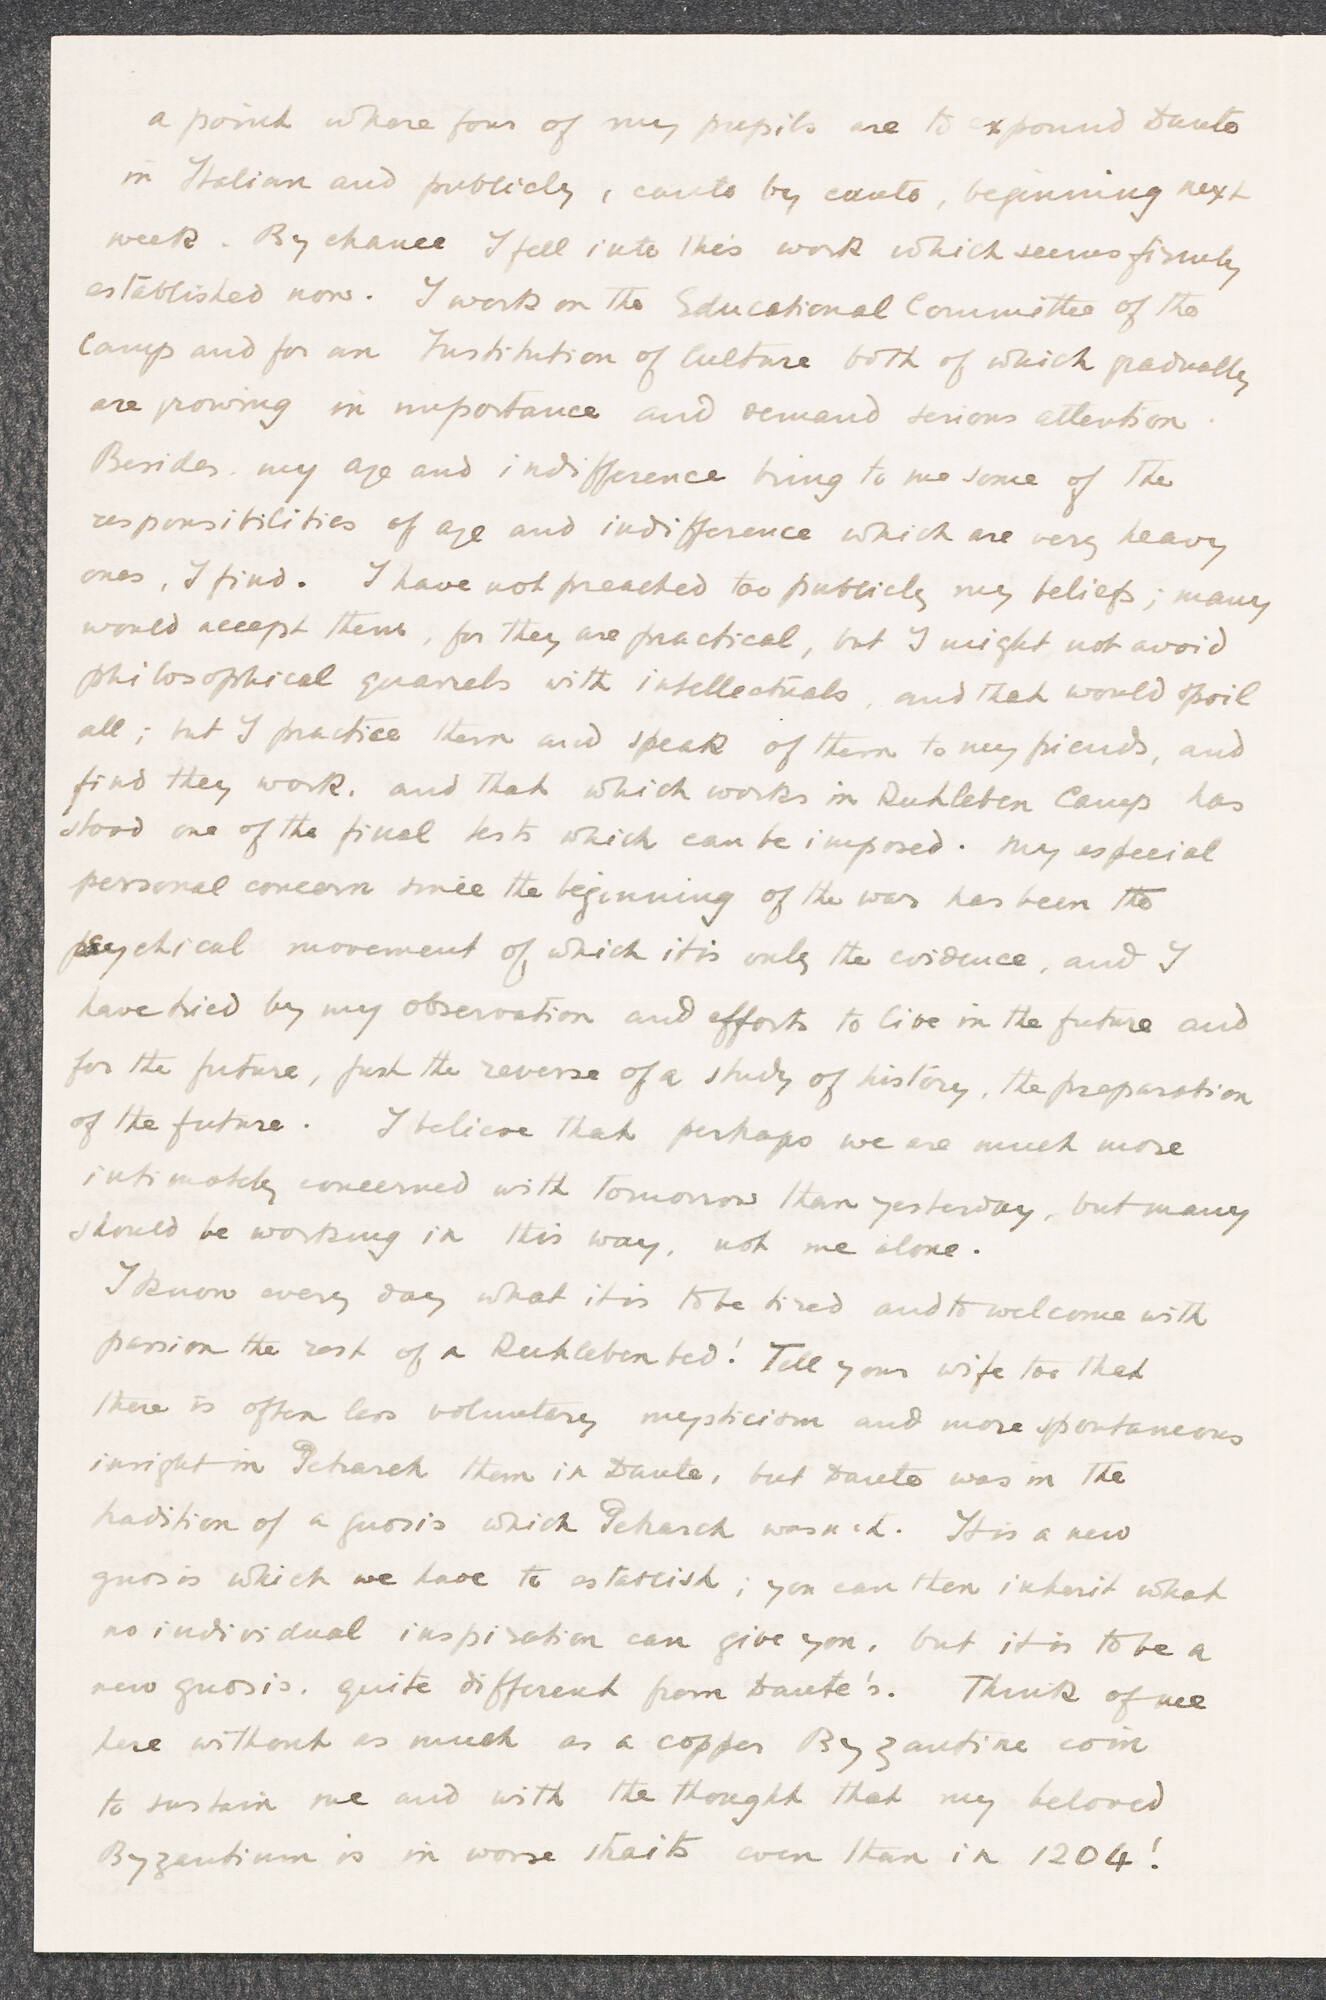 a point where four of my pupils are to expound Dante
in Italian and publicly, canto by canto, beginning next
week. By chance I fell into this work which seems firmly
established now. I work on the Educational Committee of the
Camp and for an Institution of Culture both of which gradually
are growing in importance and demand serious attention.
Besides, my age and indifference bring to me some of the
responsibilities of age and indifference which are very heavy
ones, I find. I have not preached too publicly my beliefs; many
would accept them, for they are practical, but I might not avoid
philosophical quarrels with intellectuals, and that would spoil
all; but I practice them and speak of them to my friends, and
find they work. and that which works in Ruhleben Camp has
stood one of the final tests which can be imposed. My especial
personal concern since the beginning of the war has been the
psychical movement of which it is only the evidence, and I
have tried by my observation and efforts to live in the future and
for the future, just the reverse of a study of history, the preparation
of the future. I believe that perhaps we are much more
intimately concerned with tomorrow than yesterday, but many
should be working in this way, not me alone.
I know every day what it is to be tired and to welcome with
passion the rest of a Ruhleben bed! Tell your wife too that
there is often less voluntary mysticism and more spontaneous
insight in Petrarch than in Dante, but Dante was in the
tradition of a gnosis which Petrarch wasn't. It is a new
gnosis which we have to establish; you can then inherit what
no individual inspiration can give you, but it is to be a
new gnosis, quite different from Dante's. Think of me
here without as much as a copper Byzantine coin
to sustain me and with the thought that my beloved
Byzantium is in worse straits even than in 1204!